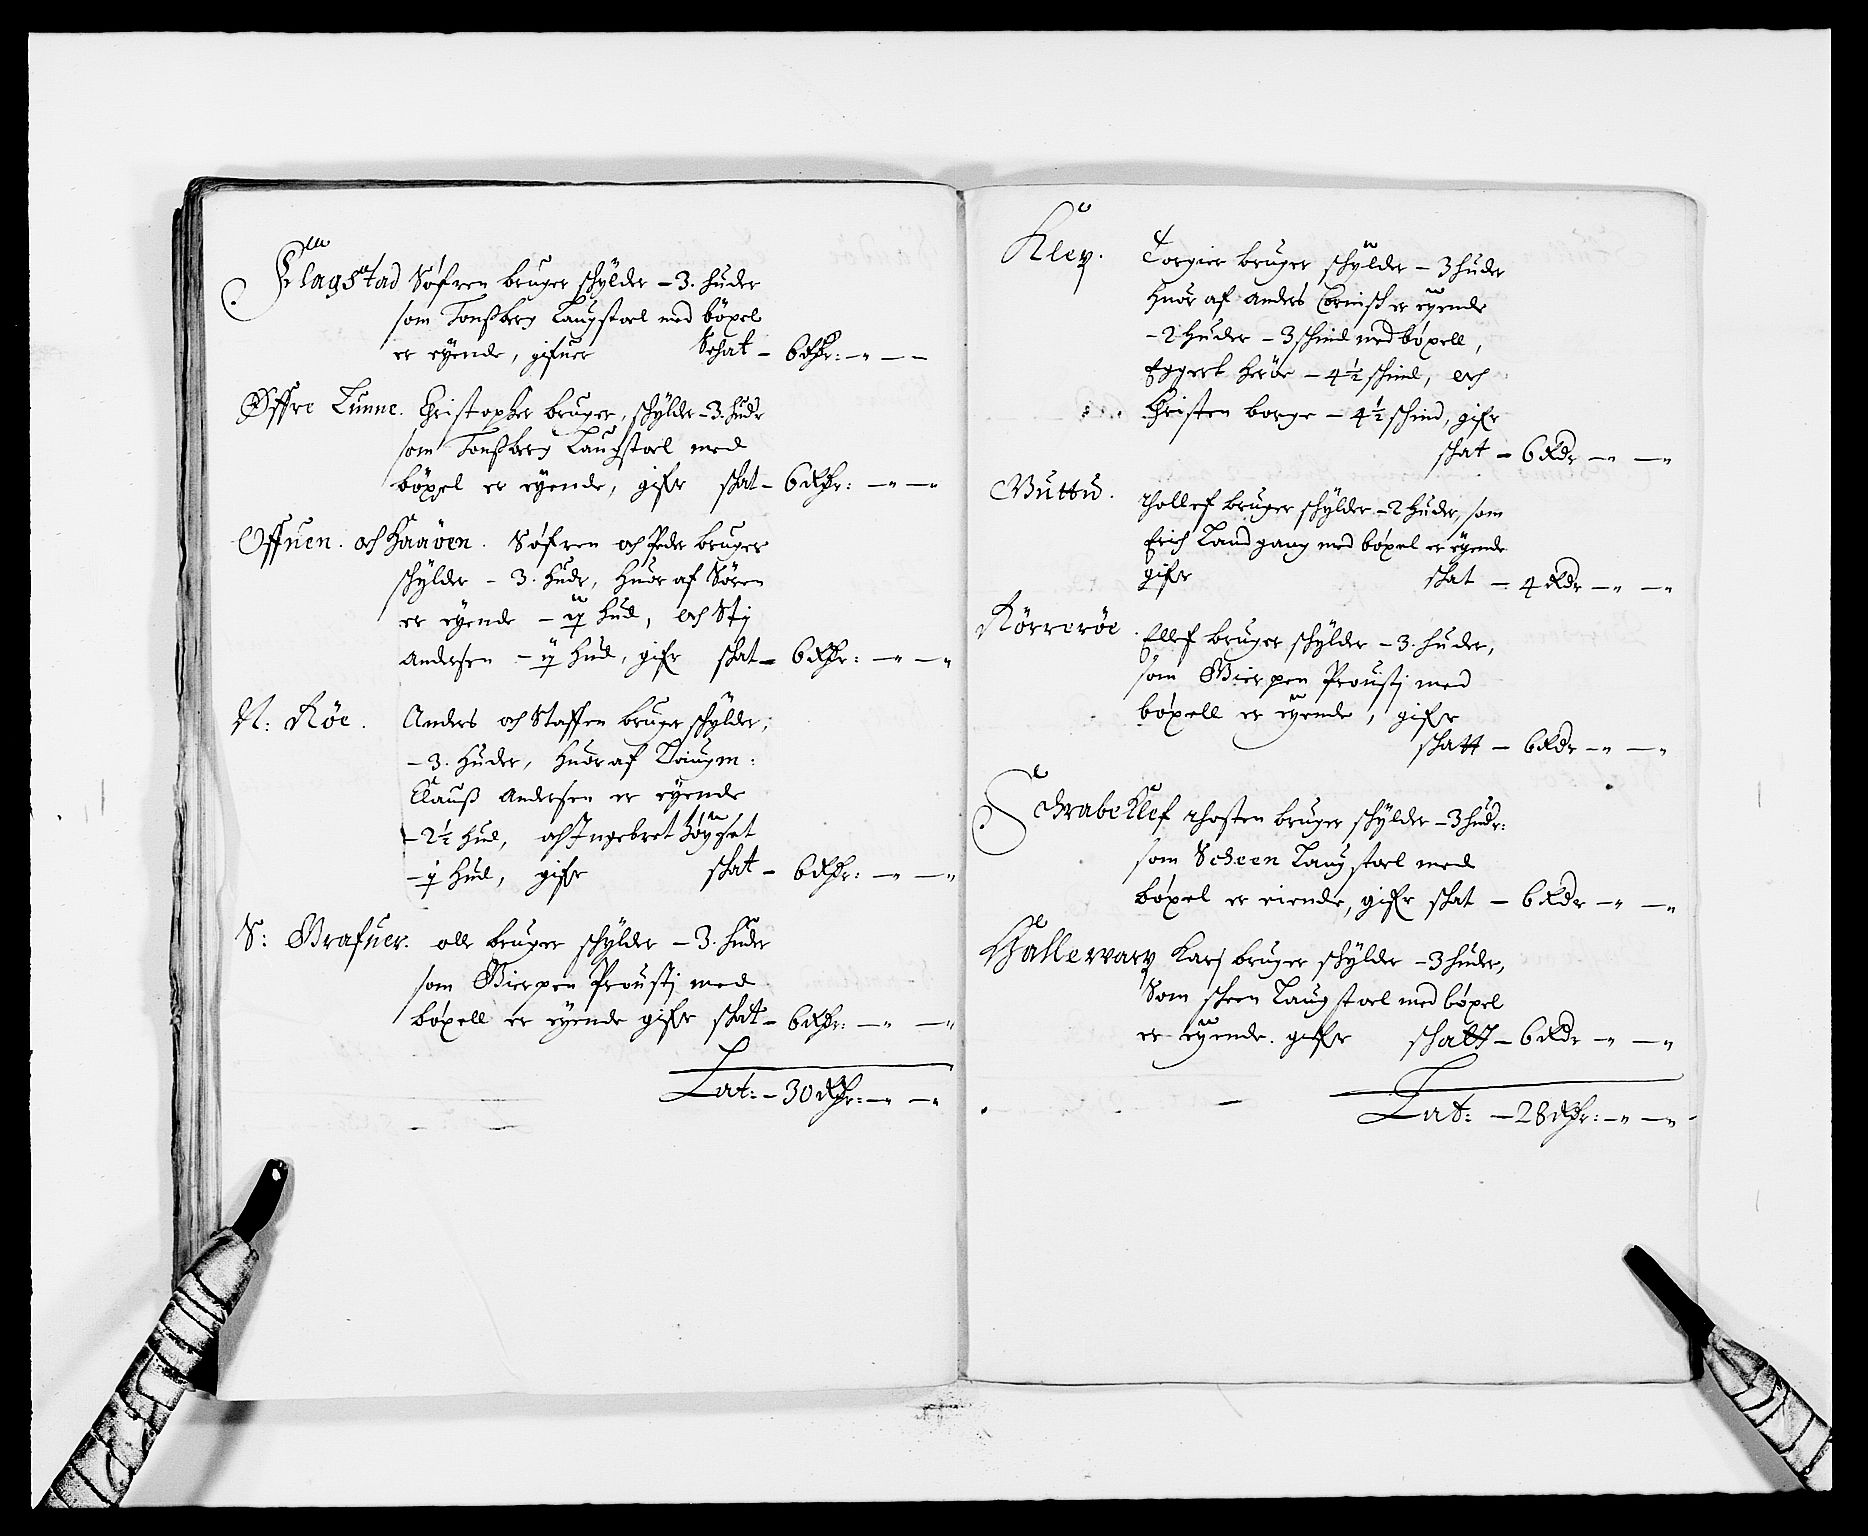 Flagstad Söfren bruger schÿlder – 3. huder
som Tonßberg Laugstoel med böxel
er eyende, gifuer Schat – 6 Rdr: – " –
Öffre Lunne. Christopher bruger, schÿlder – 3. hudr
som Tonßberg Laugstoel med
böxel er eyende, gifr schat – 6 Rdr: – " – "
Offuen. och Haaven. Söfren och Peder bruger
schÿlder – 3. hudr, huoraf Sören
er eyende – hud, och Stj
Andersen – hud, gifr schat – 6 Rdr: – " – "
N: Röe. Anders och Staffen bruger schÿlder,
– 3. huder, huoraf Laugm:
Clauß Andersen er eyende
– 2½ hud, och Ingebret
– hud, gifr schat – 6 Rdr: – " – "
S: Grafuer. olle bruger schÿlder – 3. huder
som Gierpen Proustj med
böxell er eyende gifr schat – 6 Rdr: – " – "
Lat: – 30 Rdr: – " – "
Kley. Torgier bruger schÿlder – 3 huder
huor af Anders Cornisch er eyende
– 2 huder – 3 schind med böxell,
Eggert Heröe – 4½ schind, och
Christen borge – 4½ schind, gifr
schat – 6 Rdr – " – "
Guttu. Thollef bruger schÿlder – 2 huder, som
Erich Landgang med böxel er eyende
gifr schat – 4 Rdr – " – "
Rörreröe. Ellef bruger schÿlder – 3. huder,
som Gierpen Proustj med
böxell er eyende, gifr
schatt – 6 Rdr – " – "
Schrabeklef Thosten bruger schÿlder – 3 hudr:
som Scheen Laugstoel med
böxel er eiende, gifr schat – 6 Rdr – " – "
Hallevary Karj bruger schÿlder – 3 huder,
Som scheen Laugstoel med böxel
er eyende. gifr schatt – 6 Rdr – " – "
Lat: – 28 Rdr: – " – "